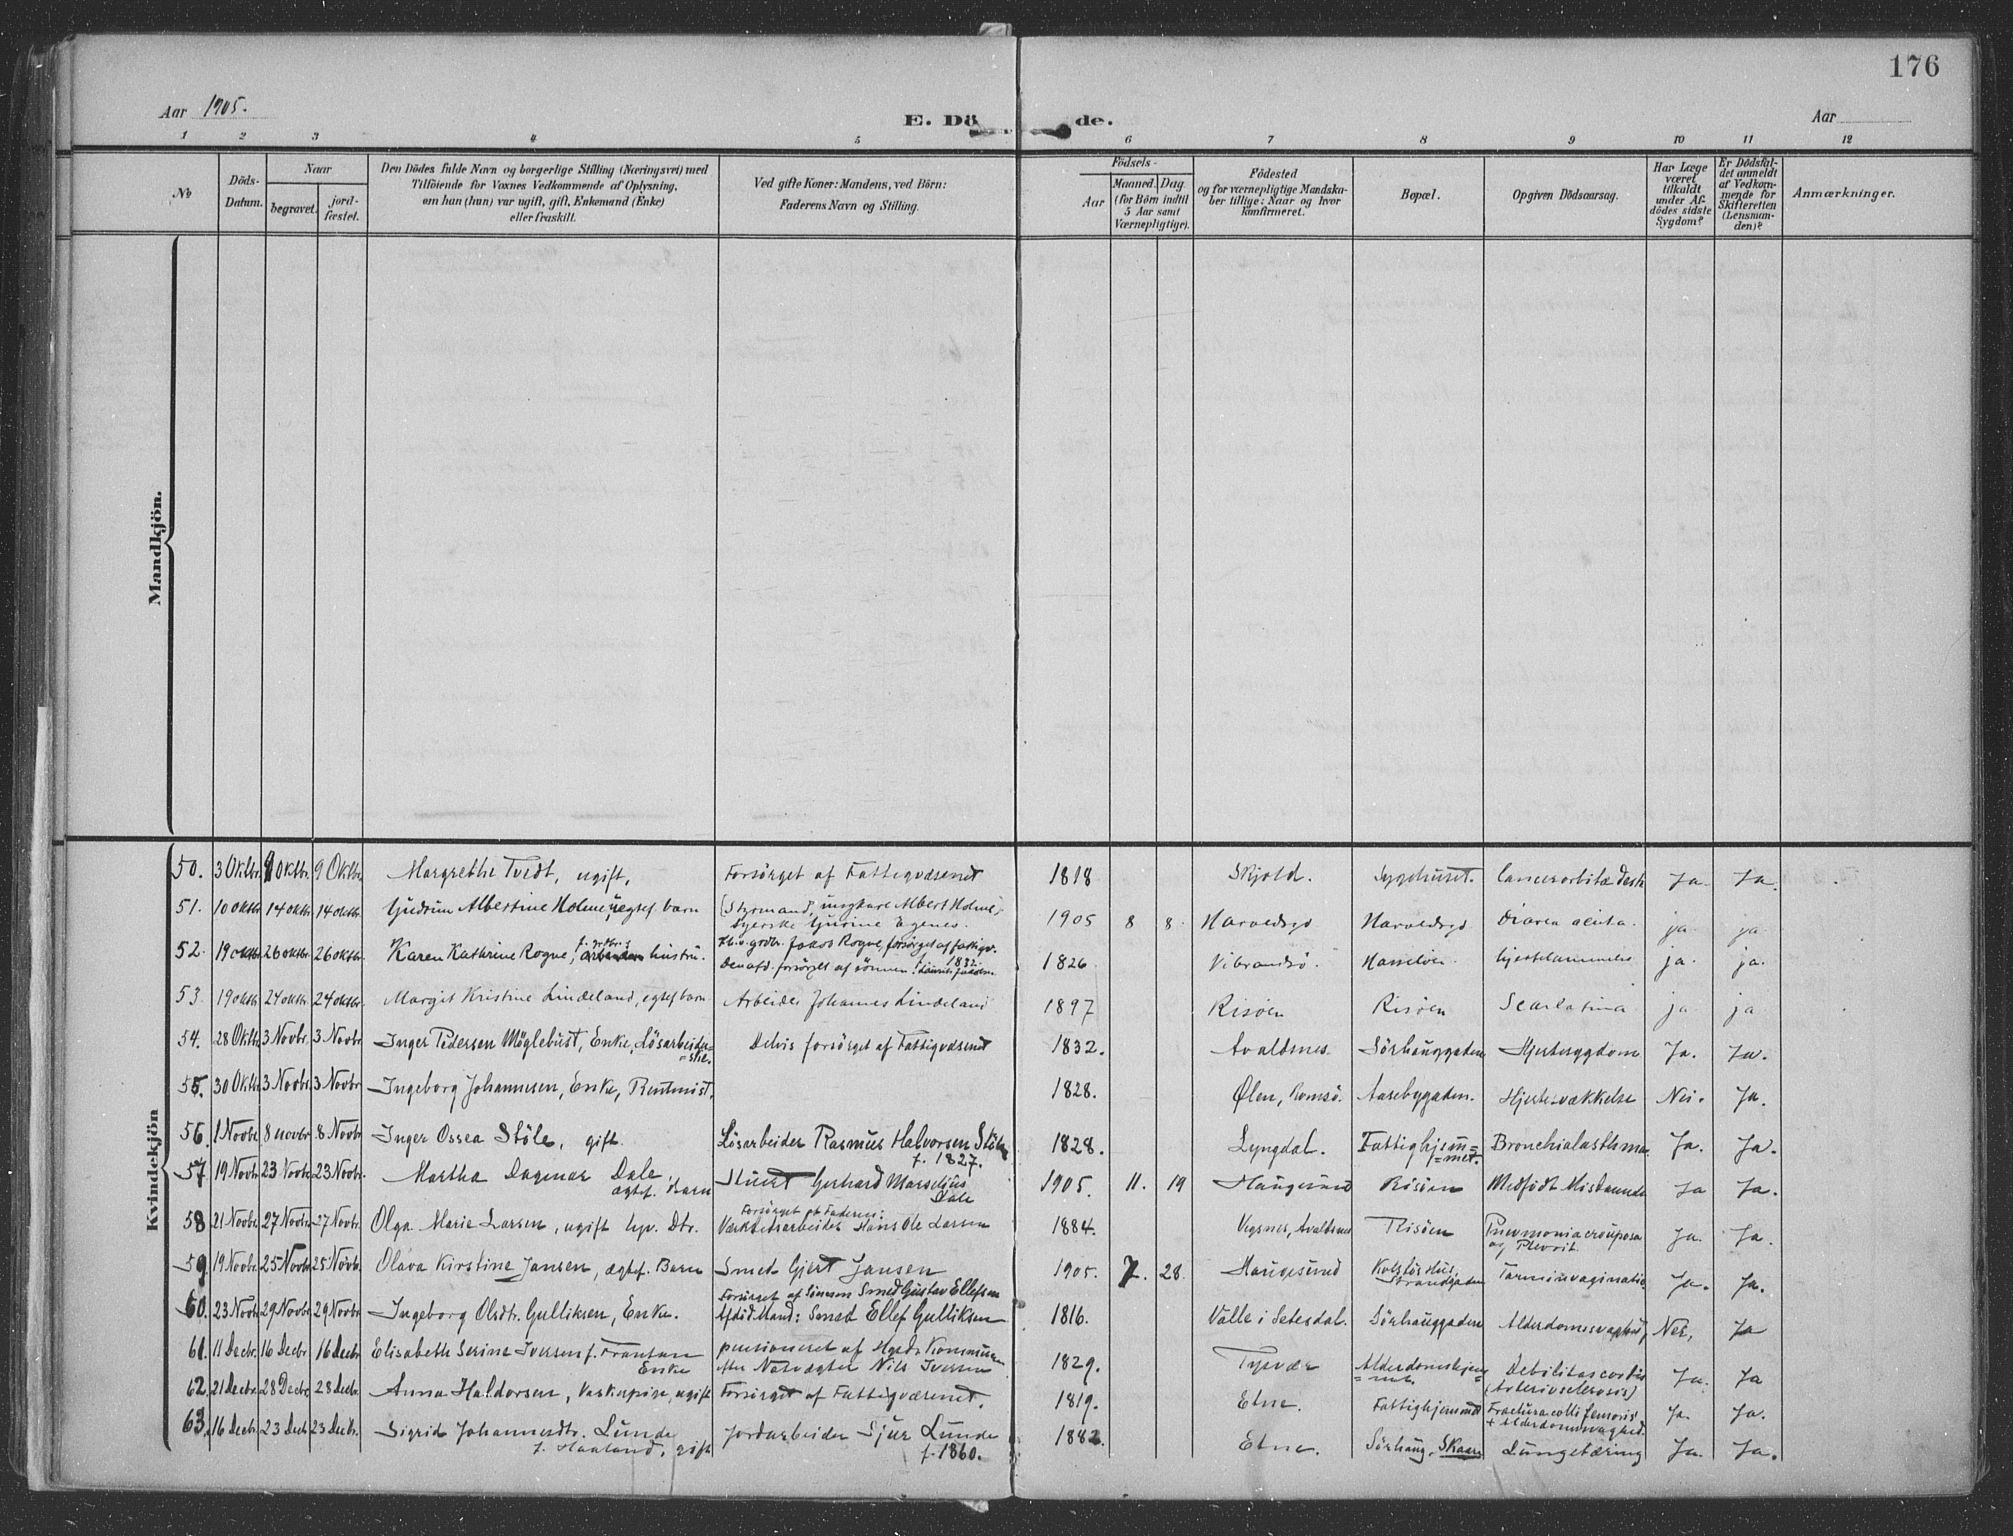 176
Aar 1905.
E. Dö de.
Aar
1 2 3 4 5 6 7 8 9 10 11 12
No
Döds-Datum.
Naar
begravet.
jord-fæstet.
Den Dödes fulde Navn og borgerlige Stilling (Næringsvei) med
Tilföiende for Voxnes Vedkommende af Oplysning,
om han (hun) var ugift, gift, Enkemand (Enke)
eller fraskilt.
Ved gifte Koner: Mandens, ved Börn:
Faderens Navn og Stilling.
Födsels-
Aar
Maaned. Dag
(for Börn indtil
5 Aar samt
Værnepligtige).
Födested
og for værnepligtige Mandska-
ber tillige: Naar og hvor
konfirmeret.
Bopæl.
Opgiven Dödsaarsag.
Har Læge
været
tilkaldt
under Af-
dödes sidste
Sygdom?
Er Dödsfal-
det anmeldt
af Vedkom-
mende for
Skifteretten
(Lensman-
den)?
Anmærkninger.
Mandkjön.
Kvindekjön
50. 3 Oktbr. 9 Oktbr. 9 Oktbr. Margrethe Tvedt, ugift, Forsörget af Fattigvæsenet 1818 Skjold. Sygehuset. Cancer orbitæ Ja. Ja.
51. 10 oktbr 14 oktbr 14 oktbr. Gudrun Albertine Holme, uegtef. barn (Styrmand, ungkare Albert Holme,
Syerske Gurine Egenes. 1905 8 8. Diarea acuta. ja ja
52. 19 oktbr 26 oktbr. 26 oktbr. Karen Kathrine Rogne, hustru. Jakob Rogne, forsörget af fattigv.
Den afd. forsörget af sönnen 1832. 1826 Vibrandsö. Hasselöen ja. ja.
53. 19 oktbr 24 oktbr 24 oktbr. Margit Kristine Lindeland, egtef barn. Arbeider Johannes Lindeland 1897 Risöen Risöen Scarlatina ja ja
54. 28 Oktbr. 3 Novbr. 3 Novbr. Inger Pedersen Möglebust, Enke, Lösarbeider=
=ske. Delvis forsörget af Fattigvæsenet 1832. Avaldsnes. Sörhauggaden Hjertesygdom Ja. Ja.
55. 30 Oktbr. 3 Novbr. 3 Novbr. Ingeborg Johannesen, Enke, Rentenist. 1828. Ølen, Romsö. Aasebygaden. Hjertesvækkelse Nei. Ja.
56. 1 Novbr 8 novbr. 8 Novbr. Inger Ossea Stöle, gift. Lösarbeider Rasmus Halvorsen Stöle
f. 1827. 1828. Lyngdal. Fattighjem=
=met. Bronchialasthma. Ja. Ja.
57. 19 Novbr. 23 Novbr. 23 Novbr. Martha Dagmar Dale,
ægtef. Barn Gerhard Marselius
Dale 1905. 11. 19 Haugesund Risöen Medfödt Misdannelse Ja Ja.
58 21 Novbr. 27 Novbr. 27 Novbr. Olga Marie Larsen, ugift hjv. Dtr. Forsörget af Faderen:
Værkstedsarbeider Hans Ole Larsen 1884. Vegsnes, Avaldsnes Risöen Pneumonia crouposa
og Plevrit. Ja. Ja.
59 19 Novbr. 25 Novbr. 25 Novbr. Olava Kirstine Jansen, ægtef. Barn Smed Gjert Jansen 1905. 7. 28. Haugesund Kolstös Hus,
Strandgaden Tarminvaginatio Ja. Ja.
60. 23 Novbr. 29 Novbr. 29 Novbr. Ingeborg Olsdtr. Gulliksen, Enke. Forsörget af Sönnen Smed Gustav Ellefsen
Afdöd Mand: Smed Ellef Gulliksen 1816. Valle i Setesdal. Sörhauggaden Alderdomssvaghed Nei, Ja
61. 11 Decbr. 16 Decbr 16 Decbr Elisabeth Serine Iversen f. Frantsen
Enke pensioneret af Hgsds Kommune
efter Natvægter Nils Iversen 1829. Tysvær Alderdomshjem=
=met. Debilitas cordis
(Arteriosclerosis) Ja. Ja
62. 21 Decbr. 28 Decbr. 28 Decbr. Anna Haldorsen, Vaskepige, ugift Forsörget af Fattigvæsenet. 1819. Etne. Fattighjemmet Fractura colli femoris
+ Alderdomssvaghed. Ja. Ja.
63. 16 Decbr. 23 Decbr 23 Decbr. Sigrid Johannesdtr. Lunde
f. Haaland, gift Jordarbeider Sjur Lunde
f. 1860. 1882. Etne. Sörhaug, Skaare Lungetæring Ja. Ja.